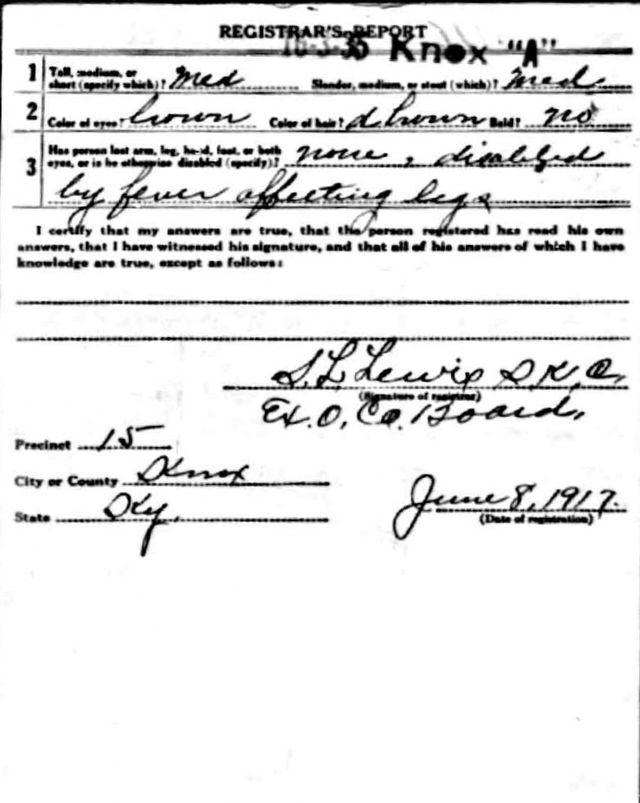 REGISTRAR'S REPORT
16-3-35 Knox "A"
1 Tall, medium, or short (specify which)? Med Slender, medium, or stout (which)? Med
2 Color of eyes? brown Color of hair? d brown Bald? no
3 Has person lost arm, leg, hand, foot, or both eyes, or is he otherwise disabled (specify)? none, disabled
by fever affecting legs
I certify that my answers are true, that the person registered has read his own
answers, that I have witnessed his signature, and that all of his answers of which I have
knowledge are true, except as follows:
S. L. Lewis
(Signature of registrar)
Ex. O. Co. Board.
Precinct 15
City or County Knox
State Ky.
June 8, 1917.
(Date of registration)